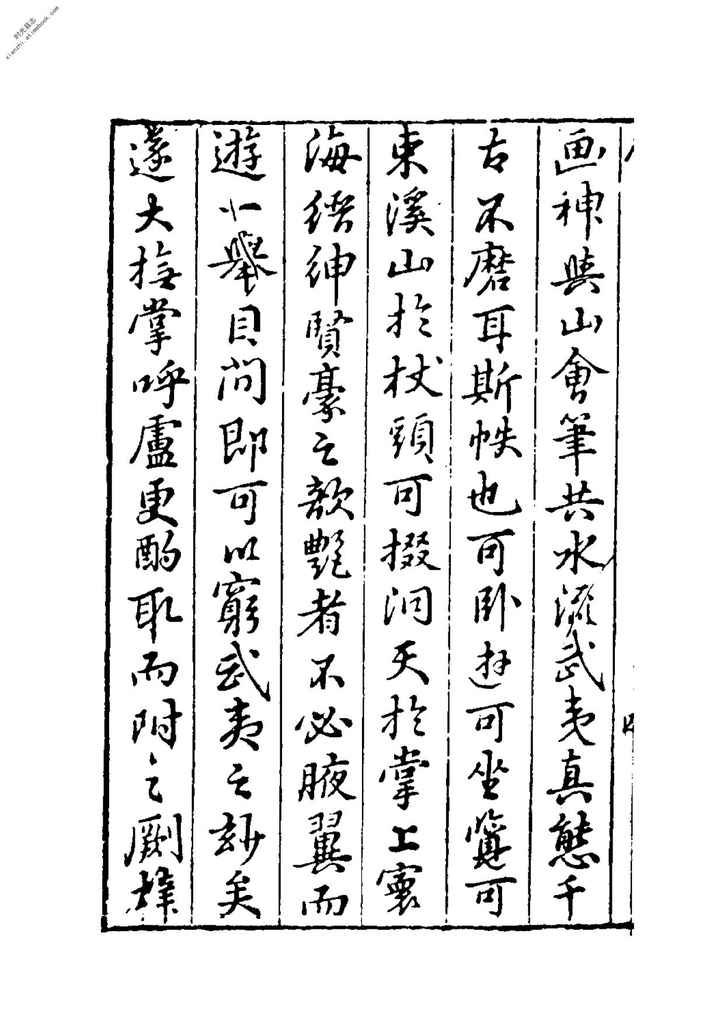 画神與山會筆共水流武夷真態千
古不磨耳斯帙也可卧遊可坐覽可
束溪山於杖頭可掇洞天於掌上寰
海縉紳賢豪之歆艷者不必腋翼而
遊一舉目間即可以窮武夷之玅矣
遂大撫掌呼盧更酌耴而附之劂
时光县志
xianzhi.atimebook.com